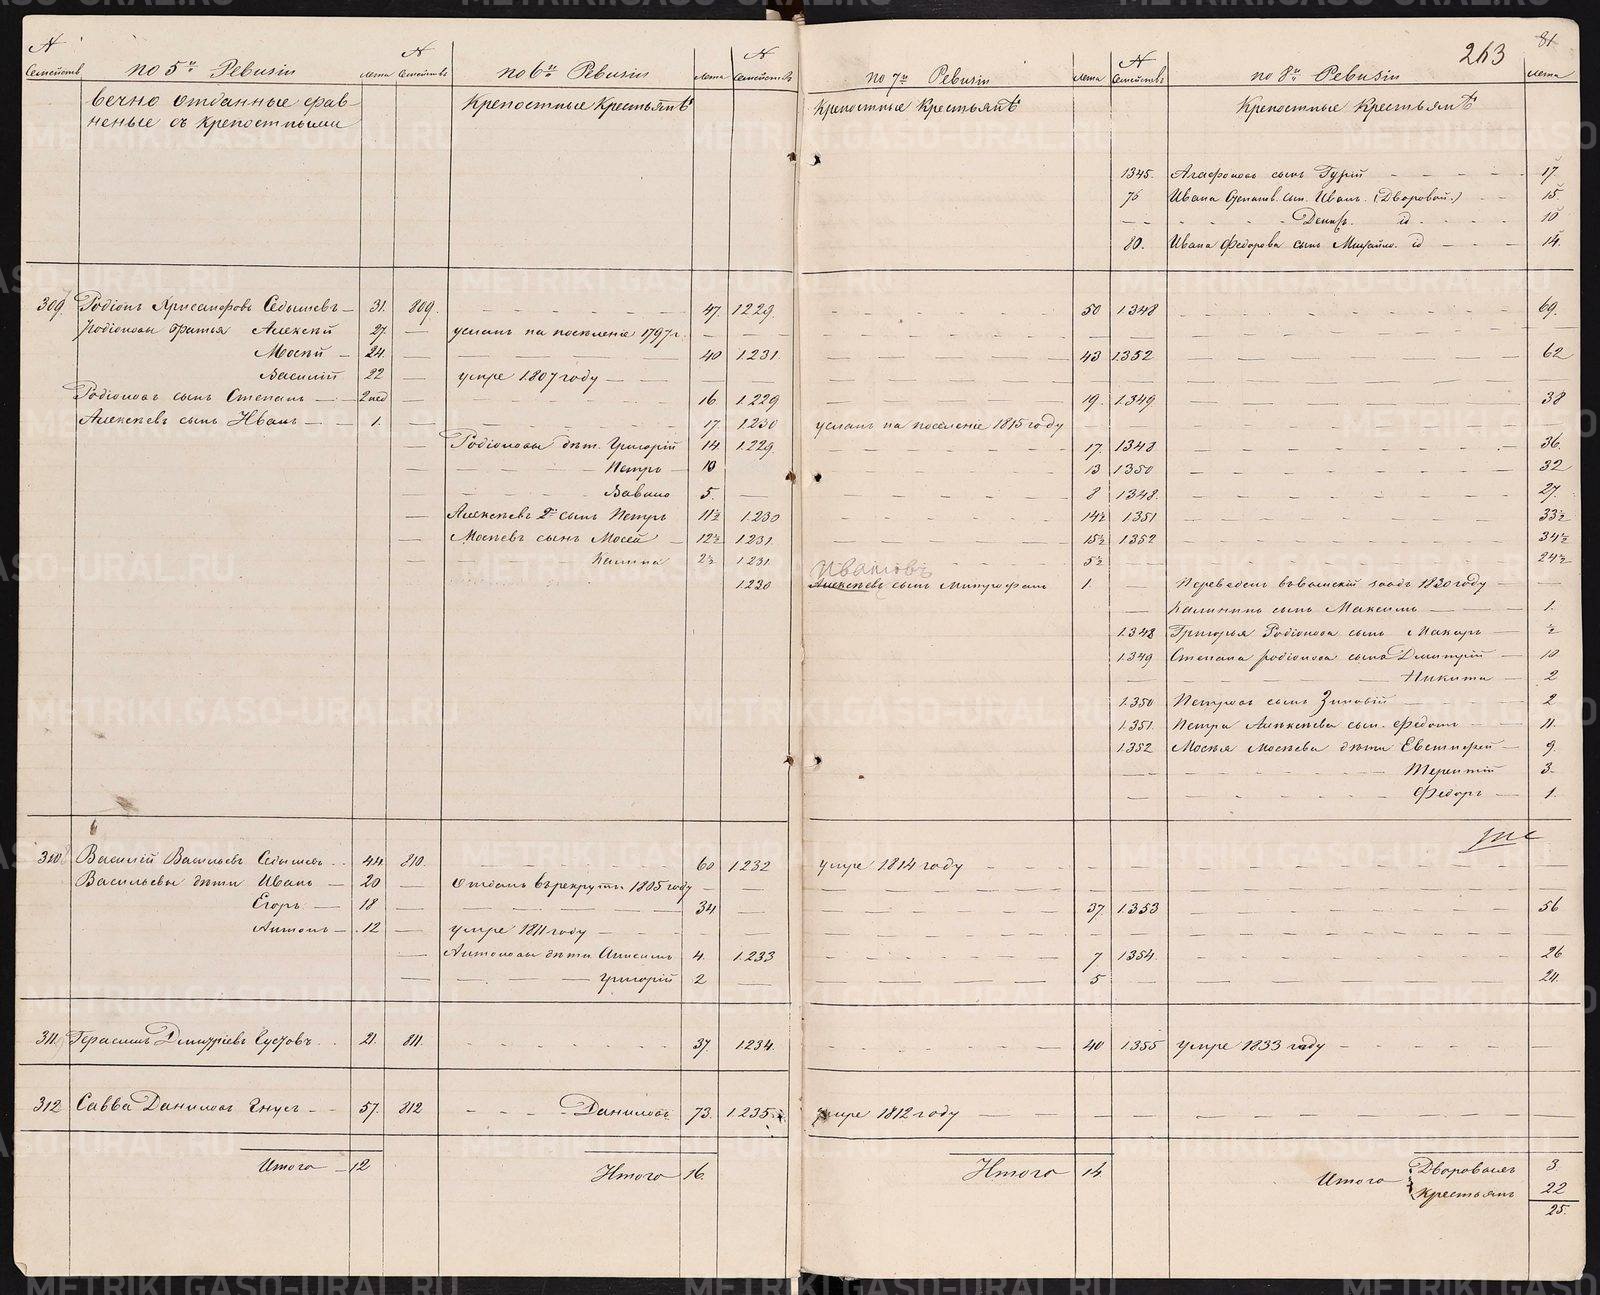 N Семействъ по 5й Ревизии лета N Семействъ по 6й Ревизии лета N Семействъ по 7й Ревизии лета N Семействъ по 8й Ревизии лета
263 81
вечно отданные срав- Крепостные Крестьянѣ Крепостные Крестьянѣ Крепостные Крестьянѣ
неные съ крепостными
1345. Агафоновъ сынъ Гурiй 17.
76 Ивана Степанов. сын. Иванъ. (Дворовой.) 15.
Денисъ. id 10
80. Ивана Федорова сынъ Михайло. id 14.
309 Родiонъ Хрисанфовъ Седышевъ 31. 809. 47. 1229. 50 1348 69.
Родiоновы братья Алексѣй 27 усланъ на поселенiе 1797 г.
Мосѣй 24 40 1231 43 1352 62
Василiй 22 умре 1807 году
Родiоновъ сынъ Степанъ 2 нед 16 1229 19. 1349 38
Алексѣевъ сынъ Иванъ 1. 17. 1230 усланъ на поселенiе 1815 году
Родiоновы дѣт. Григорiй 14 1229. 17. 1348 36.
Петръ 10 13 1350 32
Вавило 5. 8 1348. 27.
Алексѣевъ 2й сынъ Петръ 11½ 1230 14½ 1351 33½
Мосѣевъ сынъ Мосей 12½ 1231 15½ 1352 34½
Калина 2½ 1231 5½ 24½
Ивановъ
1230 Алексѣевъ сынъ Митрофанъ 1. Переведенъ въ 1830 году
Калининъ сынъ Максимъ 1.
1348 Григорья Родiонова сынъ Макаръ ½
1349 Степана родiонова сына Дмитрiй 10
Никита 2
1350 Петровъ сынъ Зиновiй 2
1351. Петра Алексѣева сын. Федотъ 11.
1352 Мосѣя Мосѣева дѣти Евстифей 9.
Терентiй 3.
Федоръ 1.
310 Василiй Васильевъ Седышевъ 44 810. 60 1232 умре 1814 году
Васильевы дѣти Иванъ 20 отданъ въ рекруты 1805 году
Егоръ 18 34 37. 1353 56
Антонъ 12 умре 1811 году
Антоновы дѣти. Анисимъ 4. 1233 7 1354. 26
Григорiй 2 5 24.
311. Герасимъ Дмитрiевъ 21. 811. 37. 1234. 40 1355 умре 1833 году
312 Савва Даниловъ Гнусъ 57. 812 Даниловъ 73. 1235. умре 1812 году
Итого 12 Итого 16. Итого 14. Итого Дворовыхъ 3.
Крестьянъ 22
25.
METRIKI.GASO-URAL.RU